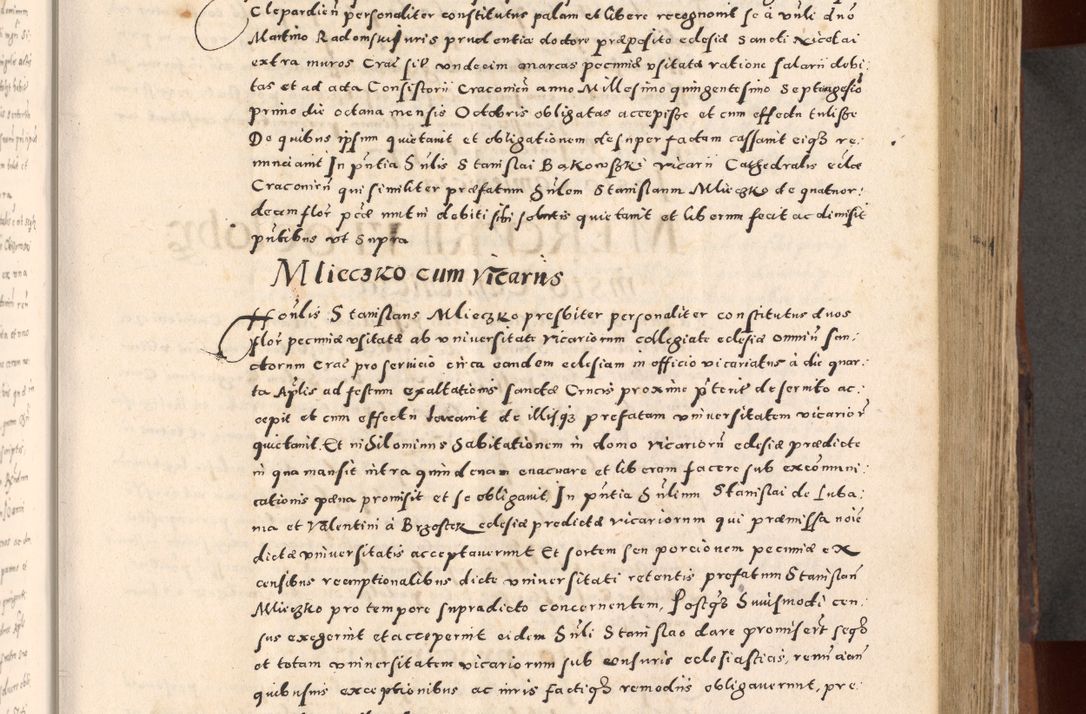 Clepardien̄ personaliter constitutus palam et libere recognouit se â vn̄li dno
Martino Radomski Juris prudentiæ doctore præposito eclesiæ Sancti Nicolai
extra muros Crac̄ sitæ vndecim marcas pecuniæ vsitatæ ratione salarii debi:
tas et ad acta Consistorii Craconien̄ anno Millesimo quingentesimo Septuagesīo
primo die octaua mensis Octobris obligatas accepisse et cum effectu tulisse
De quibus ipsum quietauit et obligationem desuper factam cassauit eiqȝ re:
nunciauit In pn̄tia Hn̄lis Stanislai Bąkowszki vicarii Cathedralis eclæ
Craconien̄ qui similiter præfatum Hn̄lem Stanislaum Mlieczko de quatuor:
decim flor pctæ mutui debiti sibi solutis quietauit et liberum fecit ac dimisit
pn̄tibus vt supra
Mlieczko cum vicariis
Hon̄lis Stanislaus Mlieczko presbiter personaliter constitutus duos
flor pecuniæ vsitatæ ab vniuersitate vicariorum collegiate eclesiæ omniū san:
ctorum Crac̄ pro seruicio circa eandem eclesiam in officio vicariatus â die quar:
ta Aplis ad festum Exaltationis sanctæ Crucis proxime pterit deseruito ac:
cepit et cum effectu leuauit de illisqȝ prefatam vniuersitatem vicarior
quietauit. Et nihilominus habitationem in domo vicariorū eclesiæ prædicte
in qua mansit intra quindenam euacuare et liberam facere sub excōmuni:
cationis pæna promisit et se obligauit In pn̄tia Hn̄lium Stanislai de Luba:
nia et Valentini â Brzostek eclesiæ predictæ vicariorum qui præmissa noīe
dictæ vniuersitatis acceptauerunt Et sortem seu porcionem pecuniæ ex
censibus reemptionalibus dicte vniuersitati retentis prefatum Stanislaū
Mlieczko pro tempore supradicto concernentem, Postqȝ huiusmodi cen:
sus exegerint et acceperint eidem Hn̄li Stanislao dare promiserūt seqȝ
et totam vniuersitatem vicariorum sub censuris eclesiasticis, renūcian̄
quibusuis exceptionibus ac iuris factiqȝ remediis obligauerunt, pre: